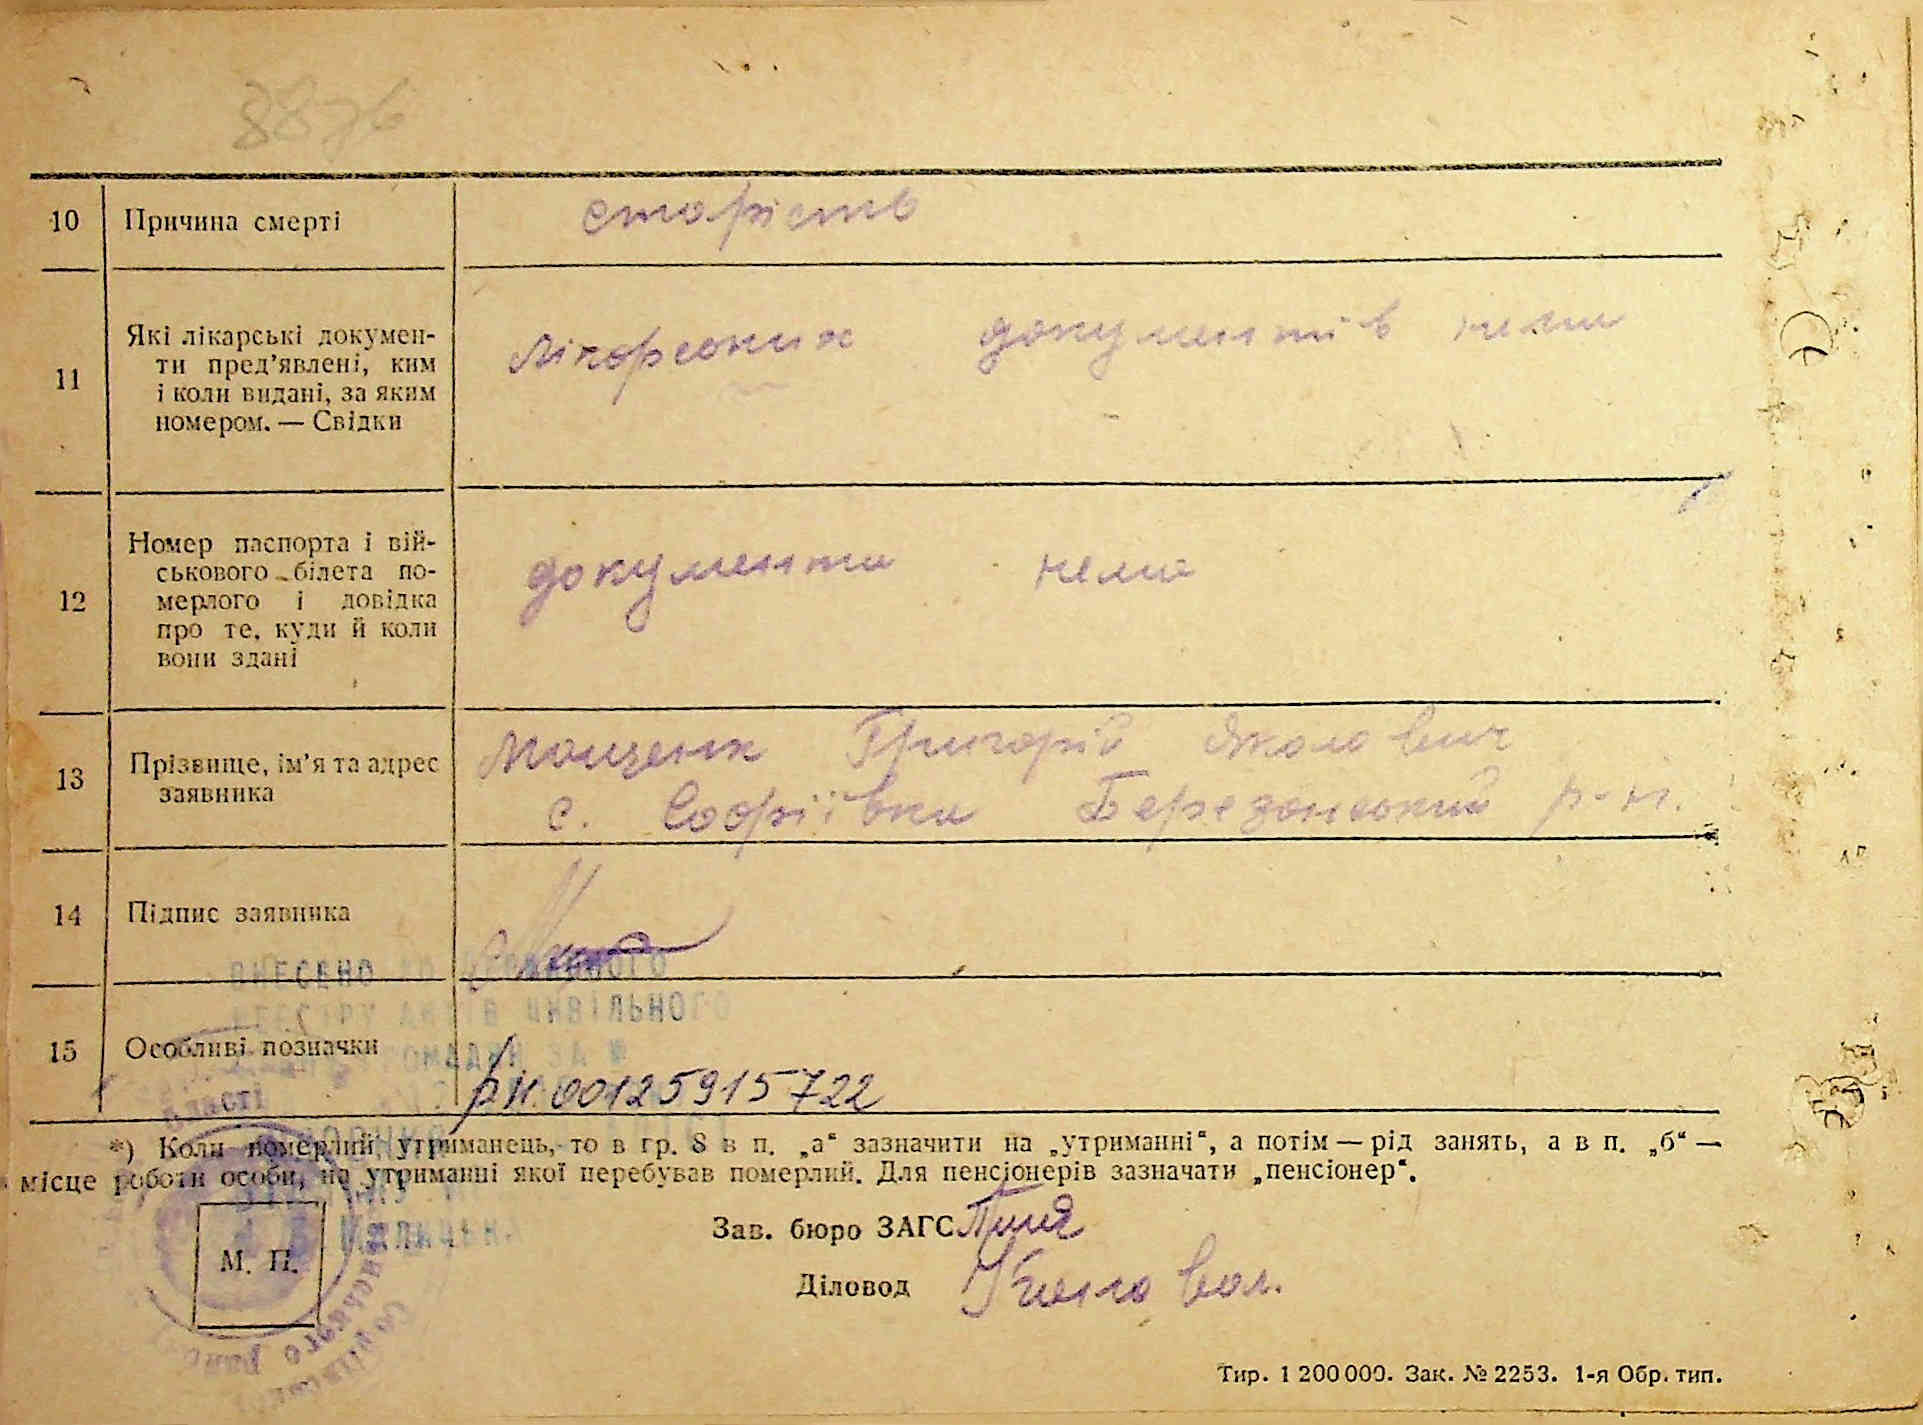 8876
10 Причина смерті старість
11 Які лікарські докумен-
ти пред'явлені, ким
і коли видані, за яким
номером. — Свідки
Лікарських документів нема
12 Номер паспорта і вій-
ськового білета по-
мерлого і довідка
про те, куди й коли
вони здані
документа нема
13 Прізвище, ім'я та адрес
заявника
Мощенк Григорій
с. Софіївка Березанський р-н.
14 Підпис заявника
ВНЕСЕНО ДО ДЕРЖАВНОГО
РЕЄСТРУ АКТІВ ЦИВІЛЬНОГО
ГРОМАДЯН ЗА №
15 Особливі позначки
рН. 00125915722
*) Коли померлий, утриманець, то в гр. 8 в п. „а“ зазначити на „утриманні“, а потім — рід занять, а в п. „б“ —
місце роботи особи, на утриманні якої перебував померлий. Для пенсіонерів зазначати „пенсіонер“.
Зав. бюро ЗАГС
М. П.
Діловод
Тир. 1 200 000. Зак. № 2253. 1-я Обр. тип.